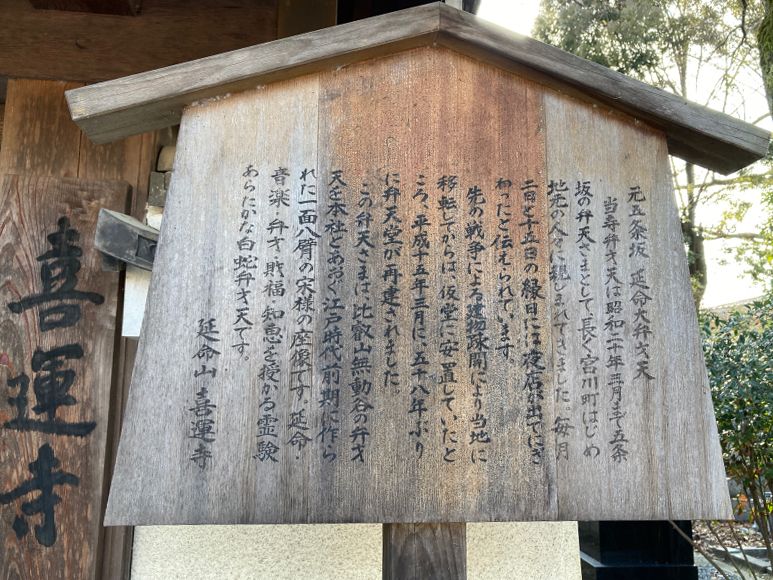 元五条坂 延命大弁才天
当寺弁才天は昭和二十年三月まで五条
坂の弁天さまとして、長く宮川町はじめ
地元の人々に親しまれてきました。毎月
三日と十五日の縁日には夜店が出てにぎ
わったと伝えられています。
先の戦争による建物疎開により当地に
移転してからは、仮堂に安置していたと
ころ、平成十五年三月に、五十八年ぶり
に弁天堂が再建されました。
この弁天さまは、比叡山無動谷の弁才
天を本社とあおぐ、江戸時代前期に作ら
れた一面八臂の宋様の座像です。延命・
音楽・弁才・財福・知恵を授かる霊験
あらたかな白蛇弁才天です。
延命山 喜運寺
喜運寺